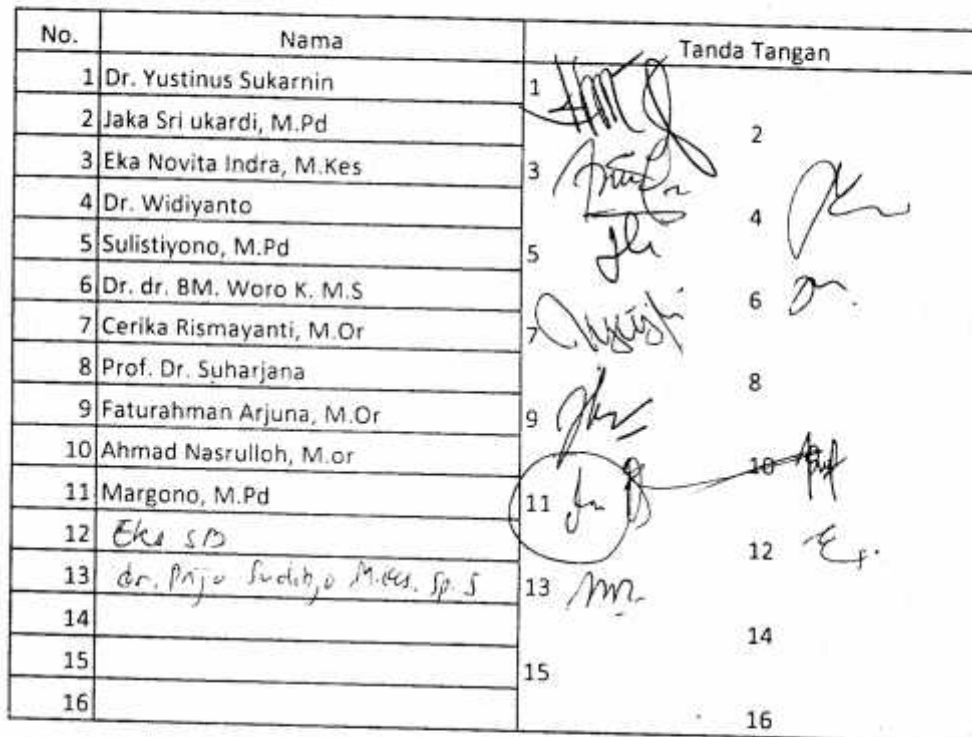 No. Nama Tanda Tangan
1 Dr. Yustinus Sukarnin 1
2 Jaka Sri ukardi, M.Pd 2
3 Eka Novita Indra, M.Kes 3
4 Dr. Widiyanto 4
5 Sulistiyono, M.Pd 5
6 Dr. dr. BM. Woro K. M.S 6
7 Cerika Rismayanti, M.Or 7
8 Prof. Dr. Suharjana 8
9 Faturahman Arjuna, M.Or 9
10 Ahmad Nasrulloh, M.or 10
11 Margono, M.Pd 11
12 Eka SB 12
13 dr. M.Kes. Sp.S 13
14 14
15 15
16 16